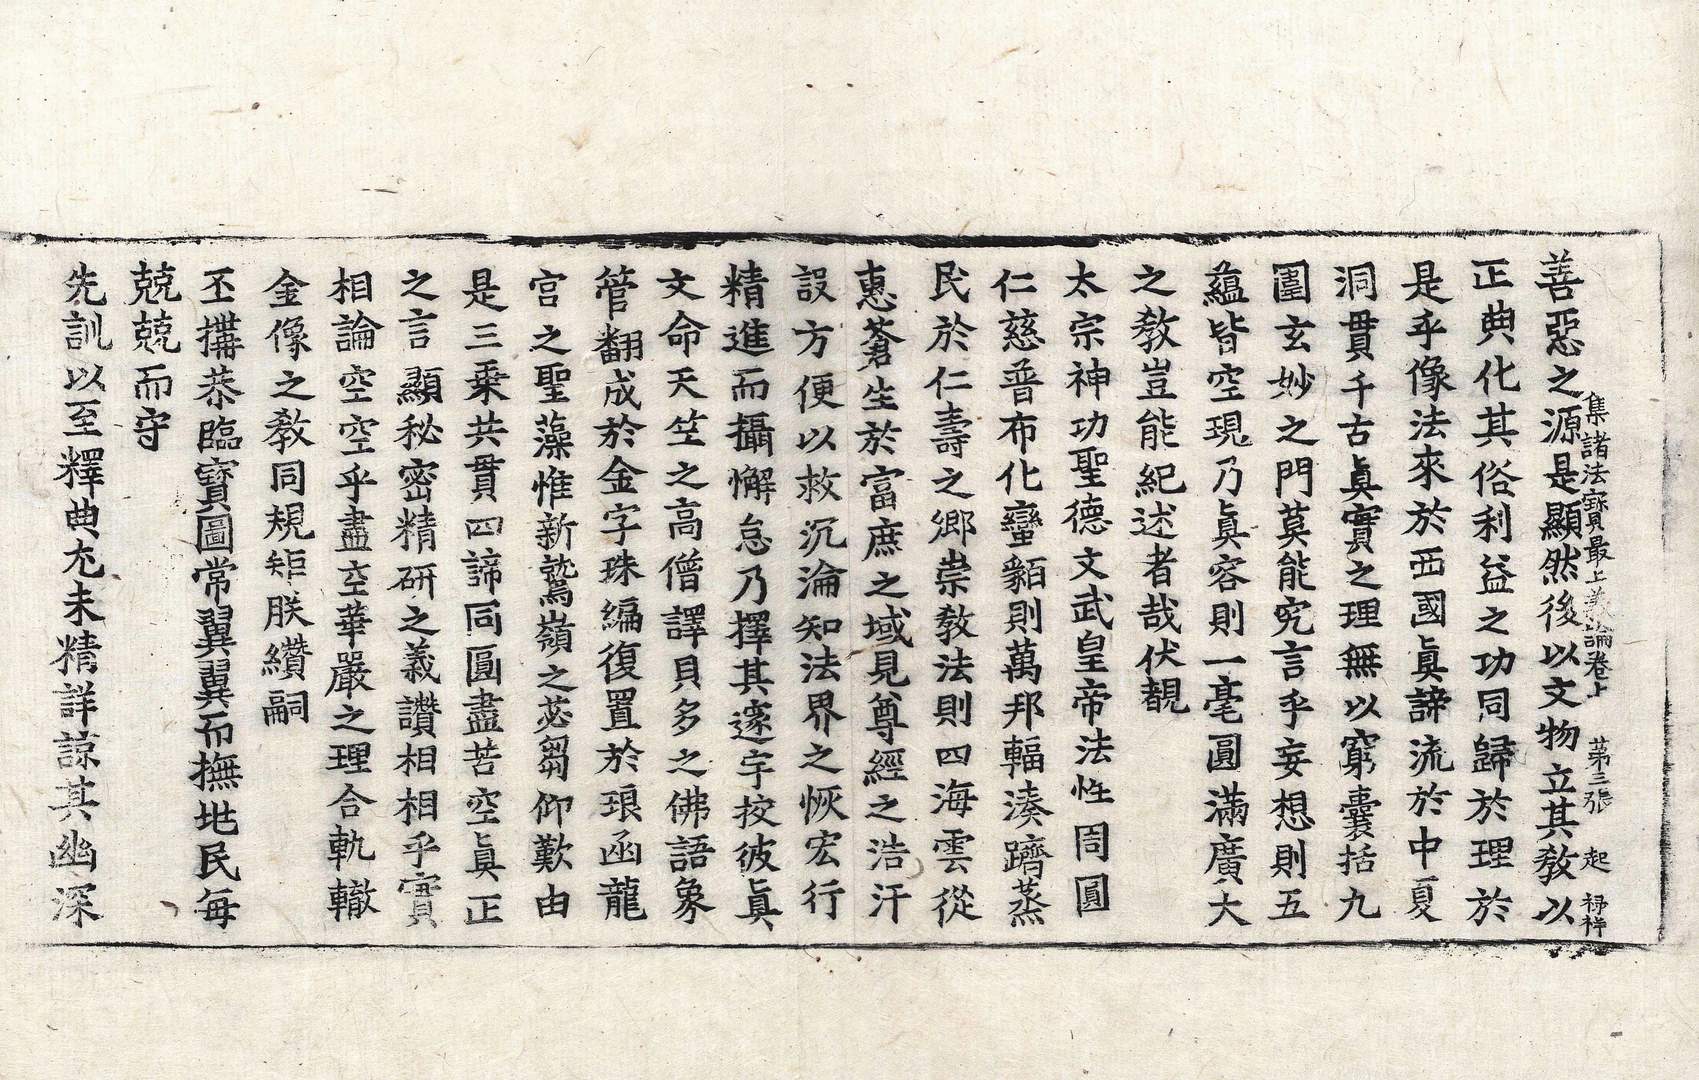 集諸法寶最上義論卷上 第三張 起 祿祥
善惡之源是顯然後以文物立其教以
正典化其俗利益之功同歸於理於
是乎像法來於西國眞諦流於中夏
洞貫千古眞實之理無以窮囊括九
圍玄妙之門莫能究言乎妄想則五
蘊皆空現乃眞容則一毫圓滿廣大
之教豈能紀述者哉伏覩
太宗神功聖德文武皇帝法性周圓
仁慈普布化蠻貊則萬邦輻湊躋蒸
民於仁壽之鄕崇教法則四海雲從
惠蒼生於富庶之域見尊經之浩汗
設方便以救沉淪知法界之恢宏行
精進而攝懈怠乃擇其邃宇挍彼眞
文命天竺之高僧譯貝多之佛語象
管翻成於金字珠編復置於琅函龍
宮之聖藻惟新鷲嶺之苾芻仰歎由
是三乗共貫四諦同圓盡苦空眞正
之言顯秘密精研之義讚相相乎實
相論空空乎盡空華嚴之理合軌轍
金像之教同規矩朕纘嗣
丕搆恭臨寶圖常翼翼而撫地民每
兢兢而守
先訓以至釋典尤未精詳諒其幽深